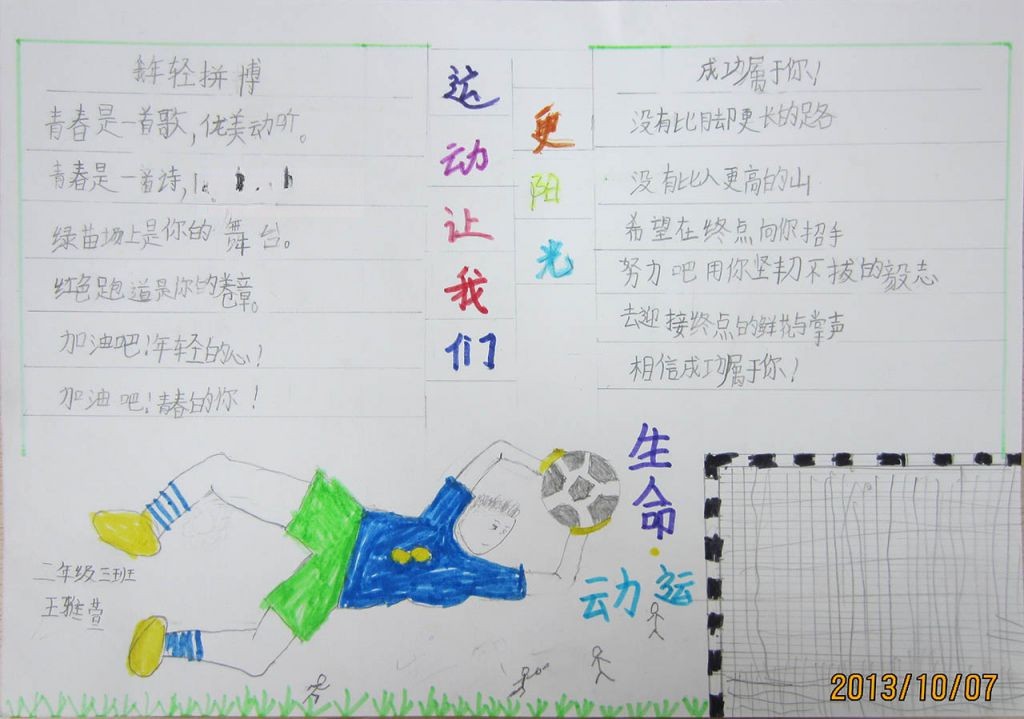 年轻拼博
青春是一首歌,优美动听。
青春是一首诗,
绿茵场上是你的舞台。
红色跑道是你的卷章。
加油吧!年轻的心!
加油吧!青春的你!
运动让我们
更阳光
成功属于你!
没有比脚更长的路
没有比人更高的山
希望在终点向你招手
努力吧用你坚韧不拔的毅志
去迎接终点的鲜花与掌声
相信成功属于你!
生命·
动运
二年级三班
王雅萱
2013/10/07